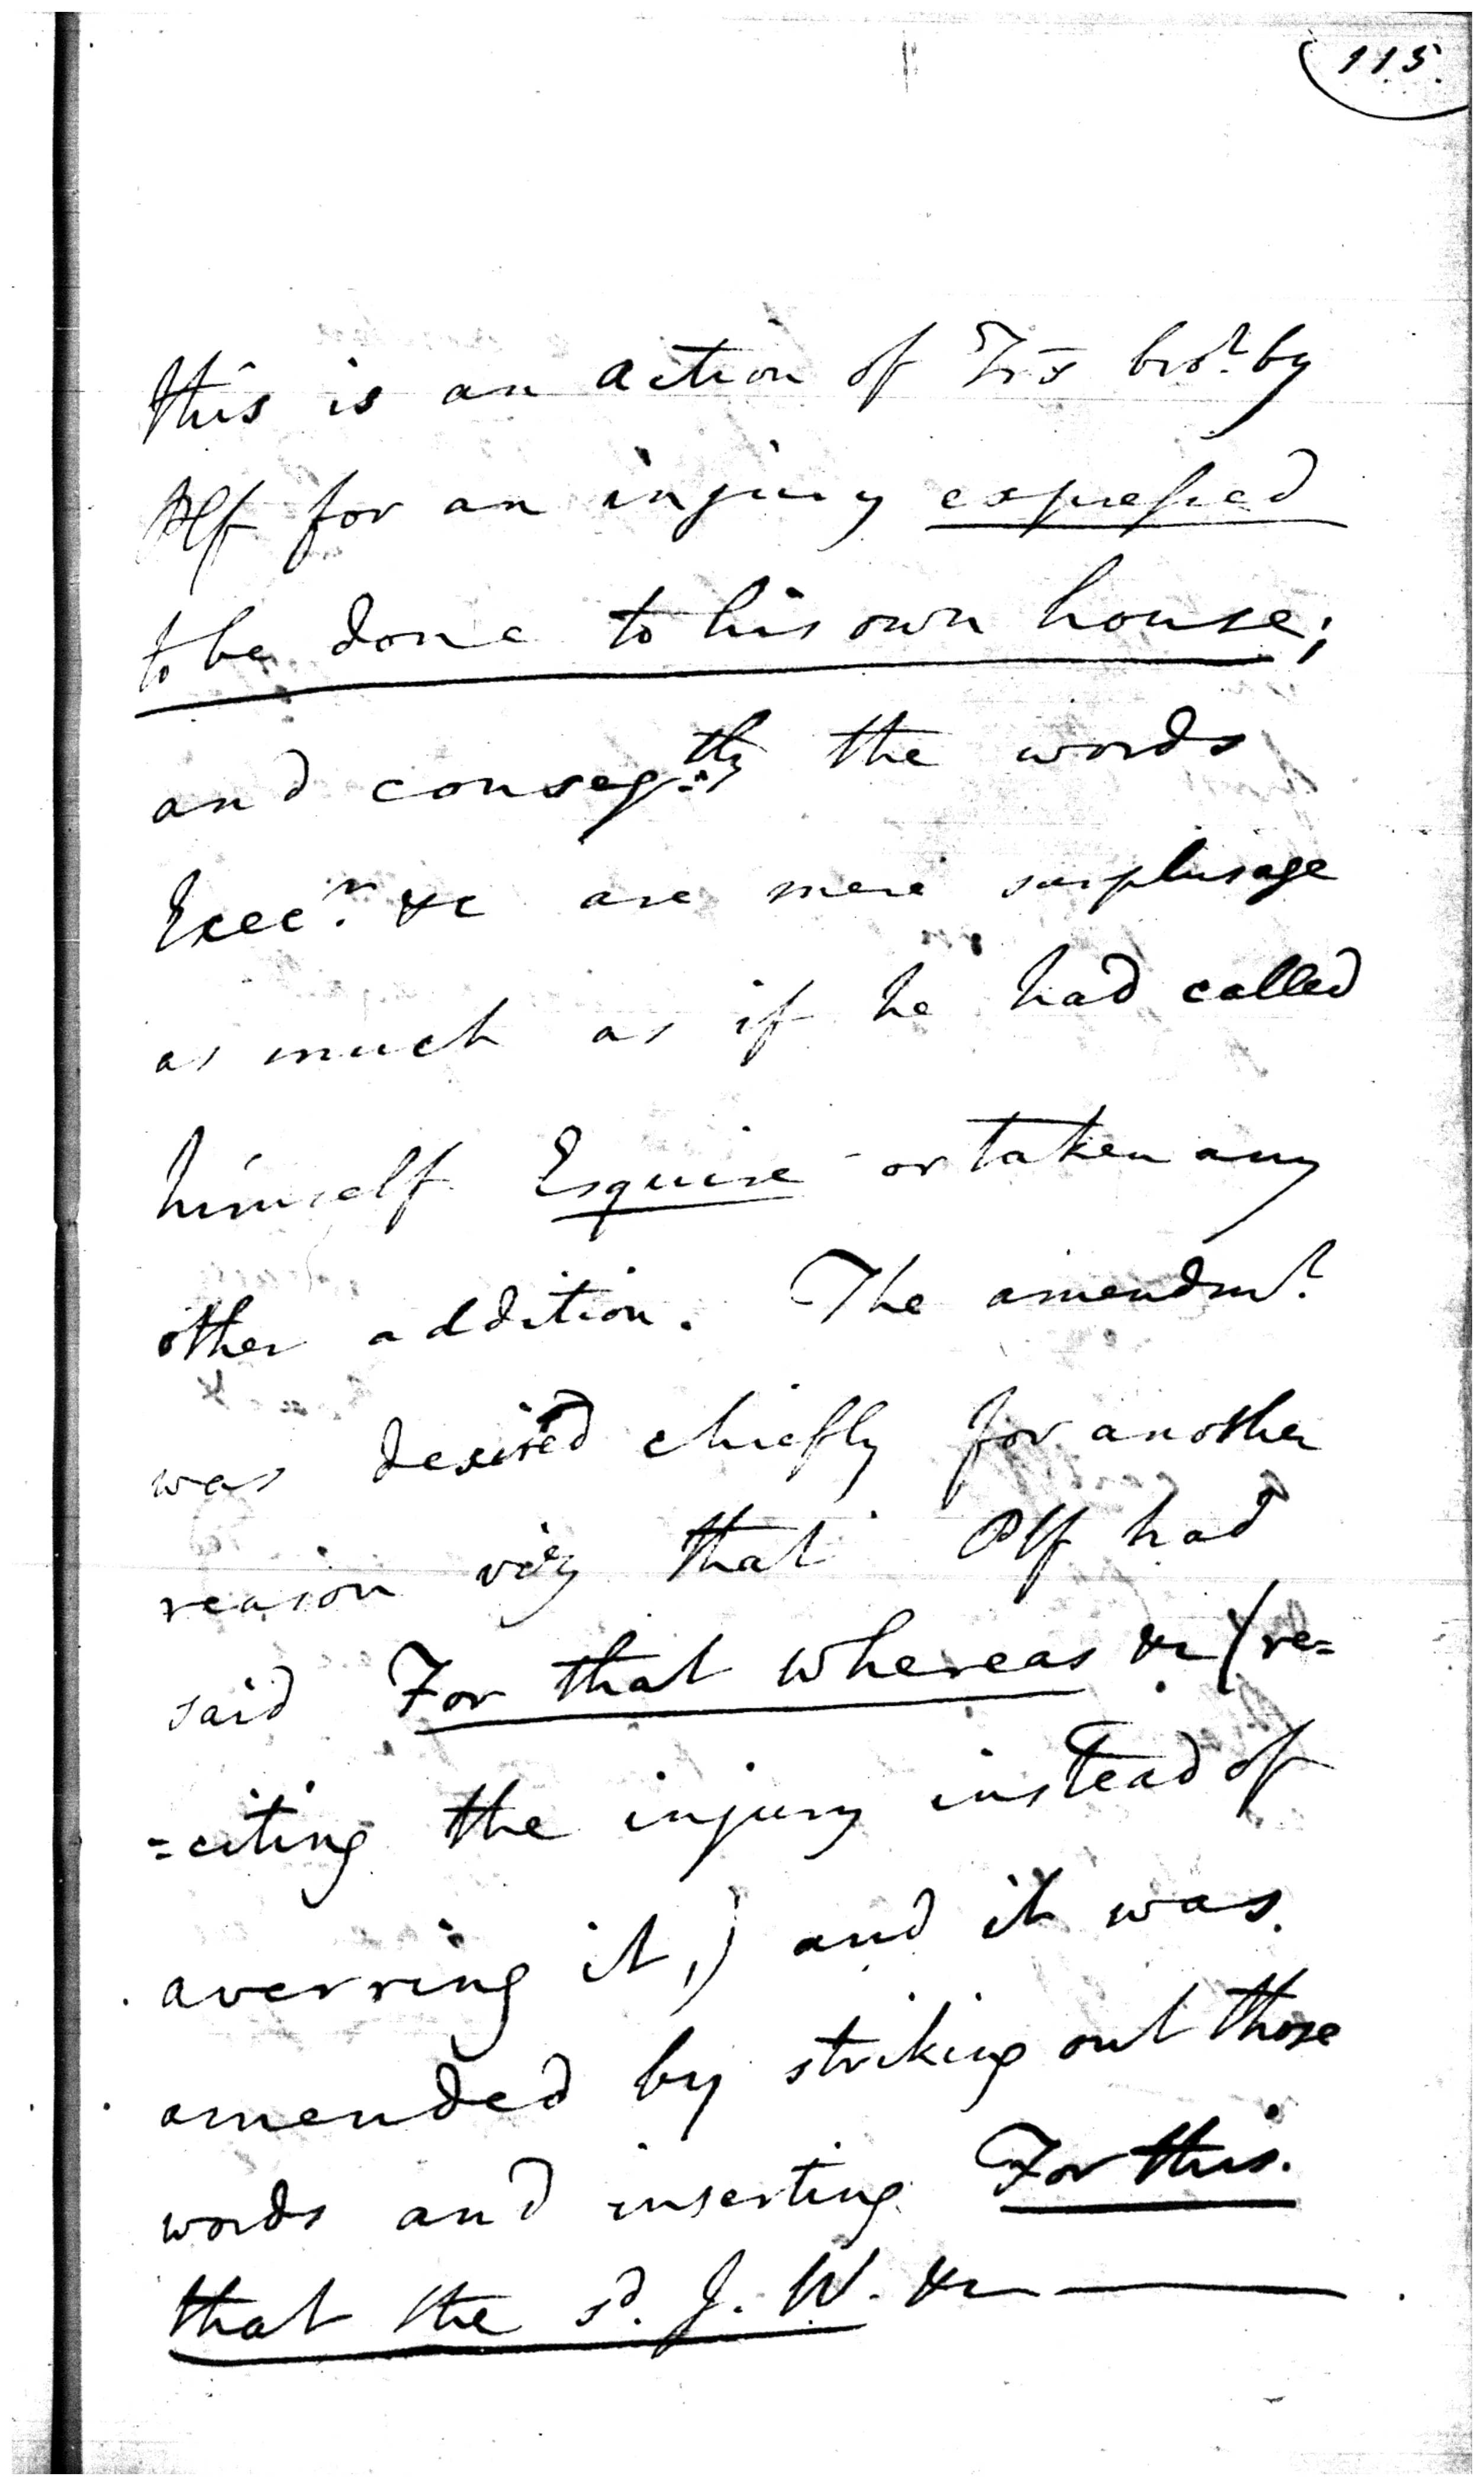 115.
this is an action of Trs brot by
Plf for an injury expressed
to be done to his own house;
and conseqtly the words
Execr. &c are mere surplusage
as much as if he had called
himself Esquire or taken any
other addition. The amendmt
was desired chiefly for another
reason viz that Plf had
said For that whereas &c (re=
=citing the injury instead of
averring it,) and it was
amended by striking out those
words and inserting For this.
that the sd. J. W. &c